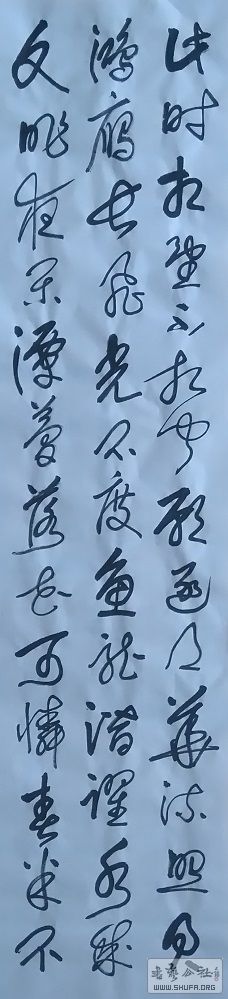 此时相望不相闻愿逐月华流照君
鸿雁长飞光不度鱼龙潜跃水成
文昨夜闲潭梦落花可怜春半不
書藝公社
WWW.SHUFA.ORG